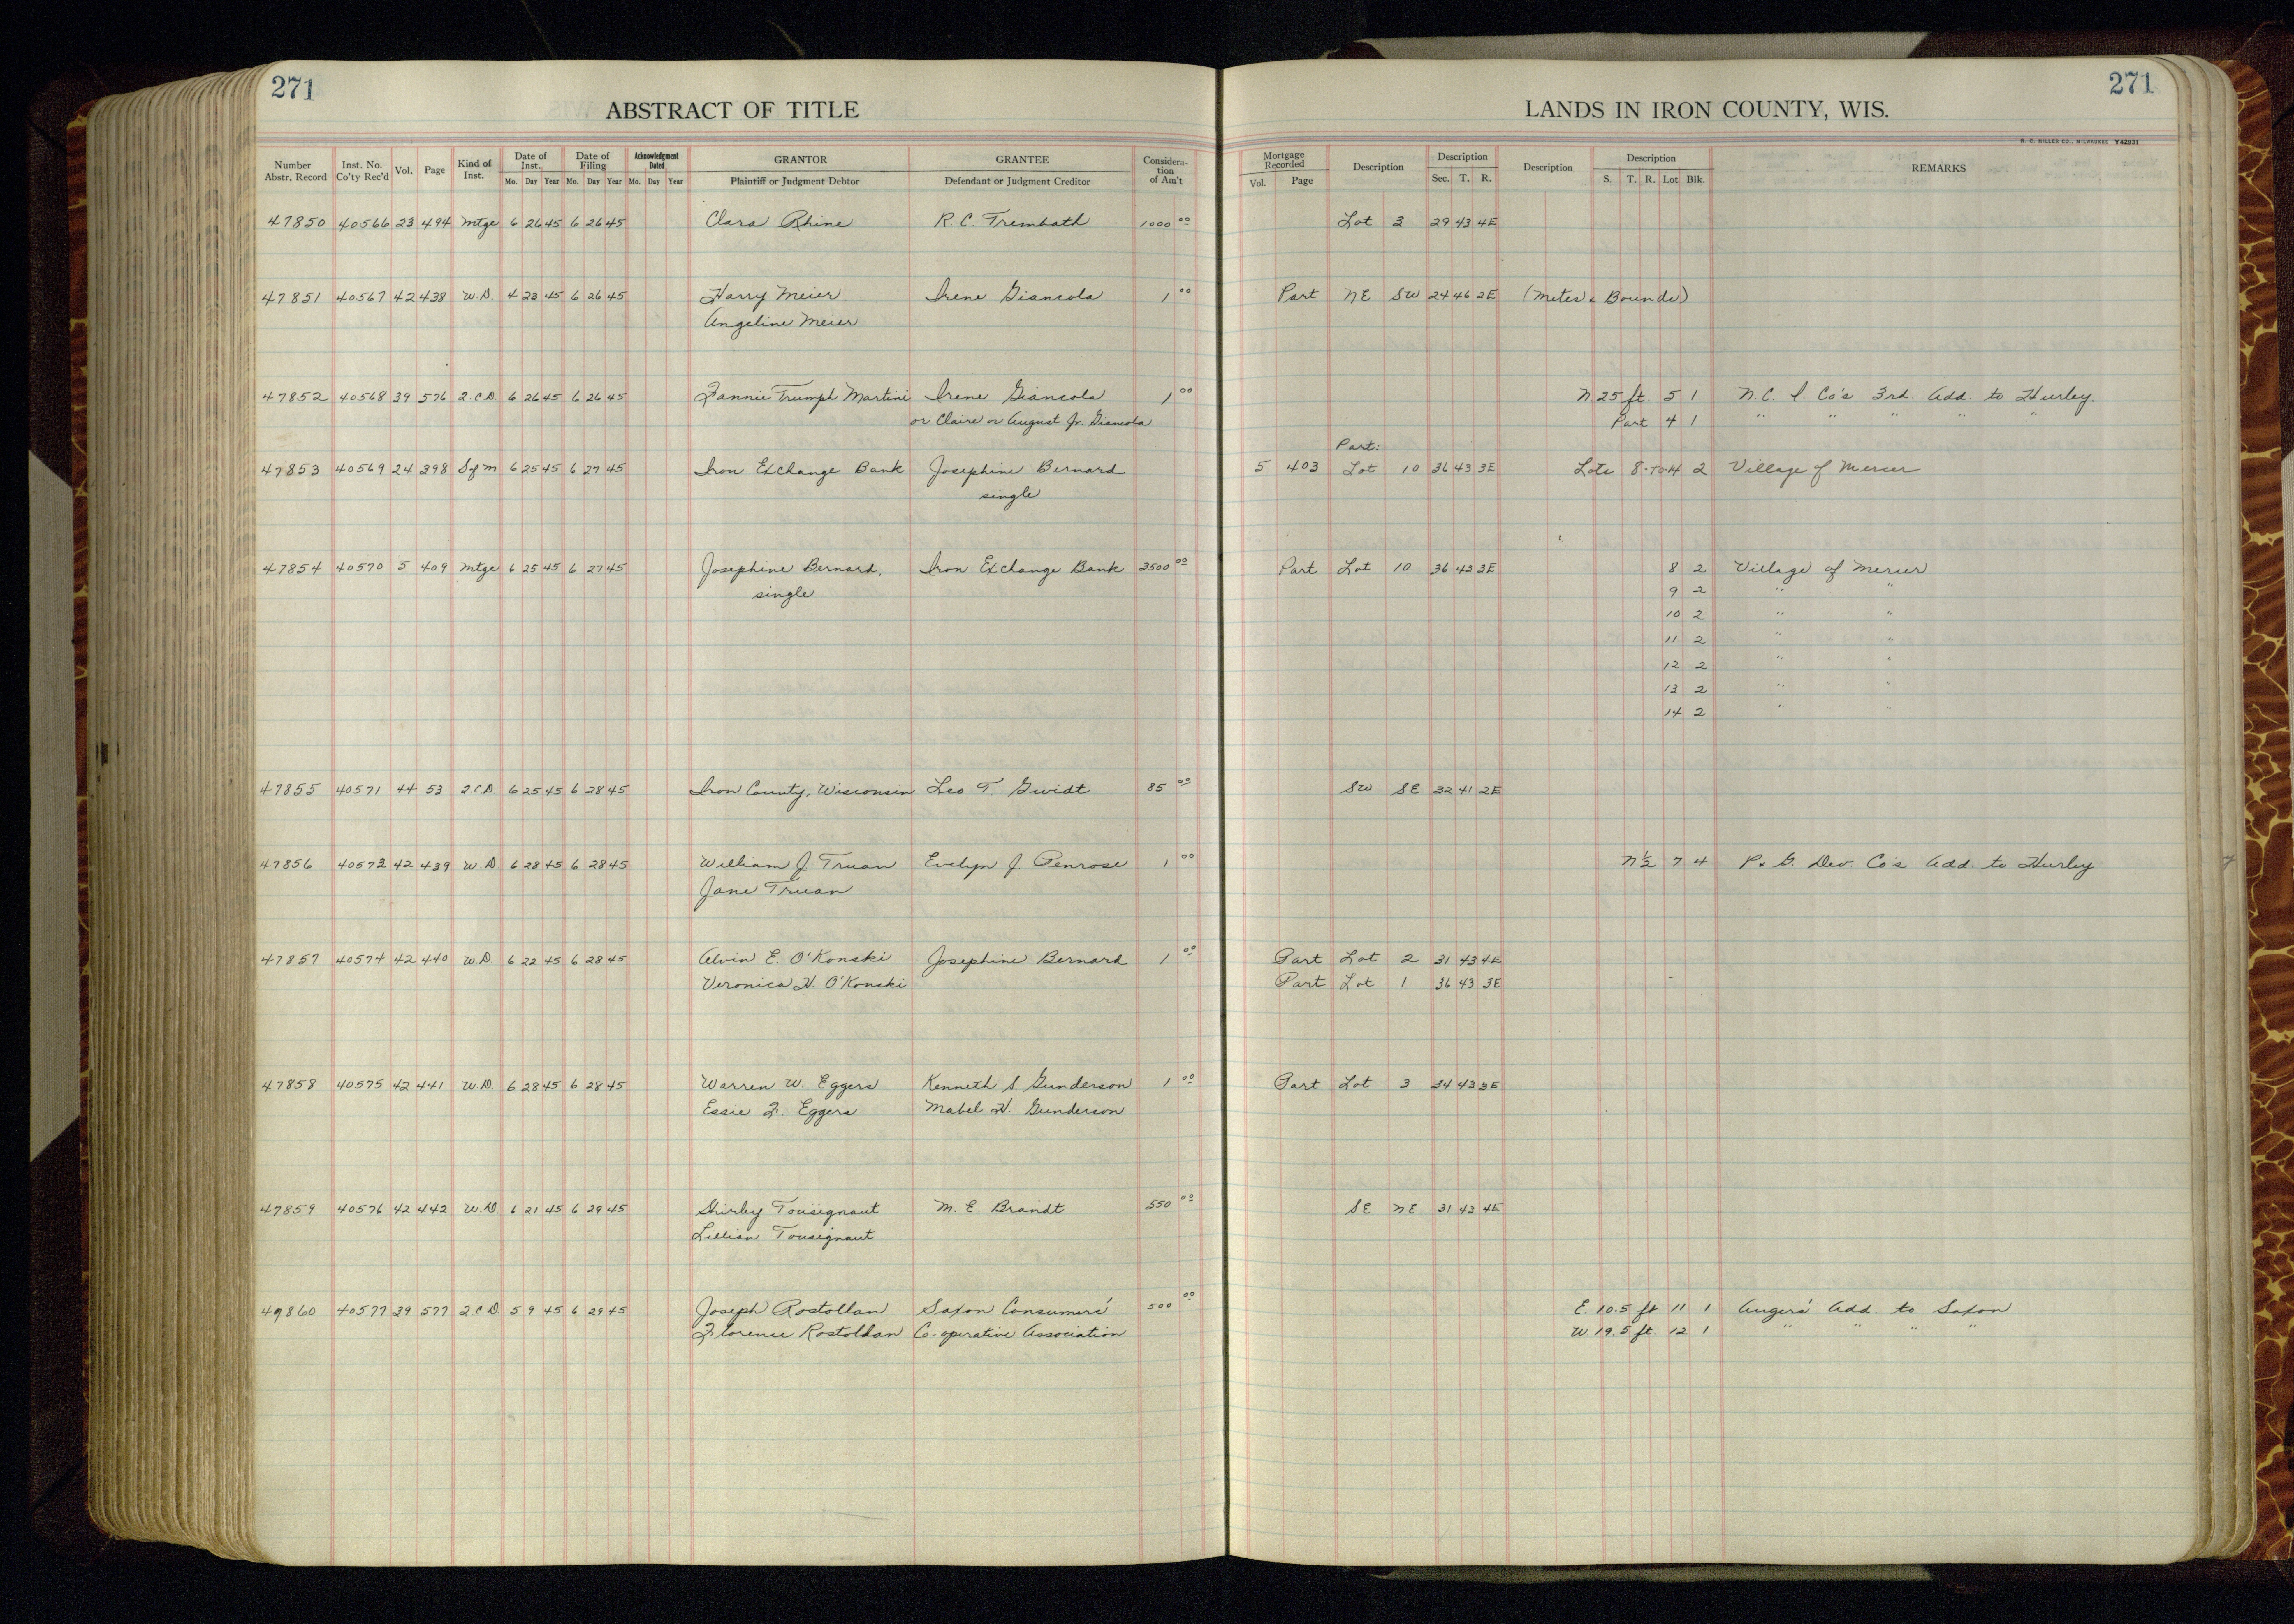 271
271
ABSTRACT OF TITLE
LANDS IN IRON COUNTY, WIS.
H. C. MILLER CO., MILWAUKEE Y42931
Number Abstr. Record Inst. No. Co'ty Rec'd Vol. Page Kind of Inst. Date of Inst. Mo. Day Year Date of Filing Mo. Day Year Acknowledgment Dated Mo. Day Year GRANTOR Plaintiff or Judgment Debtor GRANTEE Defendant or Judgment Creditor Considera-tion of Am't Mortgage Recorded Vol. Page Description Description Sec. T. R. Description Description S. T. R. Lot Blk. REMARKS
47850 40566 23 494 Mtge 6 26 45 6 26 45 Clara Rhine R. C. Trembath 1000 00 Lot 3 29 43 4E
47851 40567 42 438 W.D. 4 23 45 6 26 45 Harry Meier Irene Giancola 1 00 Part NE SW 24 46 2E (Metes & Bounds)
Angeline Meier
47852 40568 39 576 Q.C.D. 6 26 45 6 26 45 Fannie Trumph Martini Irene Giancola 1 00 N. 25 ft. 5 1 N. C. I. Co's 3rd. Add. to Hurley.
or Claire or August Jr. Giancola Part 4 1 " " " " "
Part:
47853 40569 24 398 S of M 6 25 45 6 27 45 Iron Exchange Bank Josephine Bernard 5 403 Lot 10 36 43 3E Lots 8-to-14 2 Village of Mercer
single
47854 40570 5 409 Mtge 6 25 45 6 27 45 Josephine Bernard, Iron Exchange Bank 3500 00 Part Lot 10 36 43 3E 8 2 Village of Mercer
single 9 2 " "
10 2 " "
11 2 " "
12 2 " "
13 2 " "
14 2 " "
47855 40571 44 53 Q.C.D. 6 25 45 6 28 45 Iron County, Wisconsin Leo T. Gwidt 85 00 SW SE 32 41 2E
47856 40573 42 439 W.D 6 28 45 6 28 45 William J Truan Evelyn J Penrose 1 00 N½ 7 4 P. & G. Dev. Co's Add. to Hurley
Jane Truan
47857 40574 42 440 W.D. 6 22 45 6 28 45 Alvin E. O'Konski Josephine Bernard 1 00 Part Lot 2 31 43 4E
Veronica H. O'Konski Part Lot 1 36 43 3E
47858 40575 42 441 W.D. 6 28 45 6 28 45 Warren W. Eggers Kenneth S. Gunderson 1 00 Part Lot 3 34 43 3E
Essie F. Eggers Mabel H. Gunderson
47859 40576 42 442 W.D. 6 21 45 6 29 45 Shirley Tousignaut M. E. Brandt 550 00 SE NE 31 43 4E
Lillian Tousignaut
49860 40577 39 577 Q.C.D. 5 9 45 6 29 45 Joseph Rostollan Saxon Consumers' 500 00 E. 10.5 ft 11 1 Angers' Add. to Saxon
Florence Rostollan Co-operative Association W 19.5 ft. 12 1 " " " "